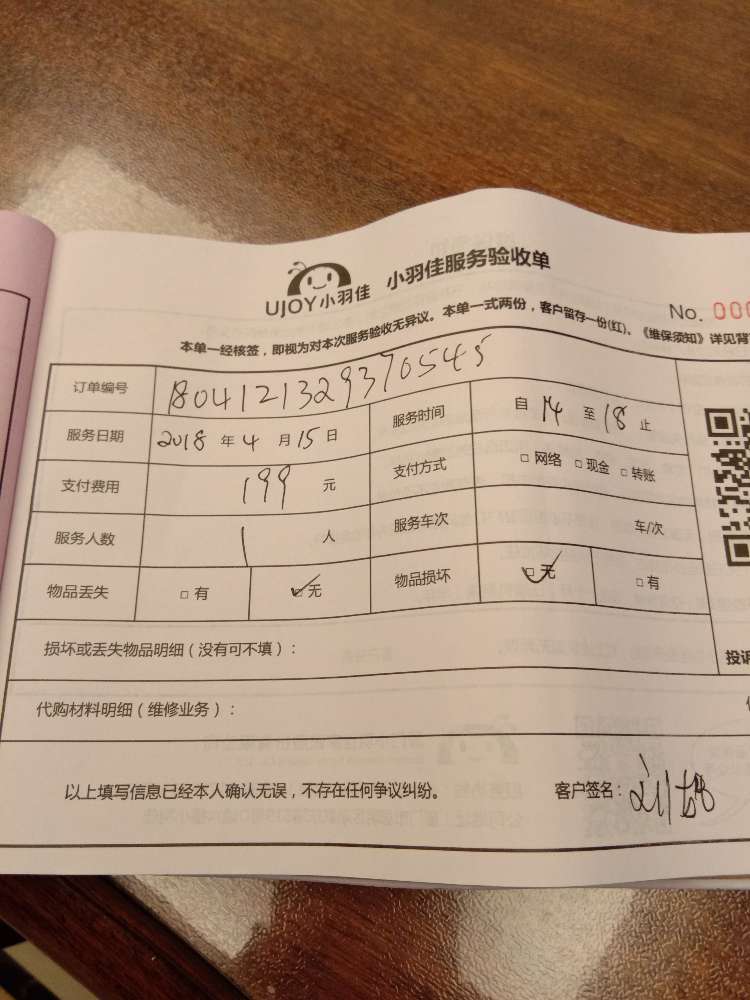 UJOY小羽佳 小羽佳服务验收单
No. 000
本单一经核签，即视为对本次服务验收无异议。本单一式两份，客户留存一份(红)。《维保须知》详见背
订单编号 180412132937054545
服务日期 2018 年 4 月 15 日 服务时间 自 14 至 18 止
支付费用 199 元 支付方式 □ 网络 □ 现金 □ 转账
服务人数 1 人 服务车次 车/次
物品丢失 □ 有 ☑ 无 物品损坏 ☑ 无 □ 有
损坏或丢失物品明细（没有可不填）：
投诉
代购材料明细（维修业务）：
以上填写信息已经本人确认无误，不存在任何争议纠纷。 客户签名：刘